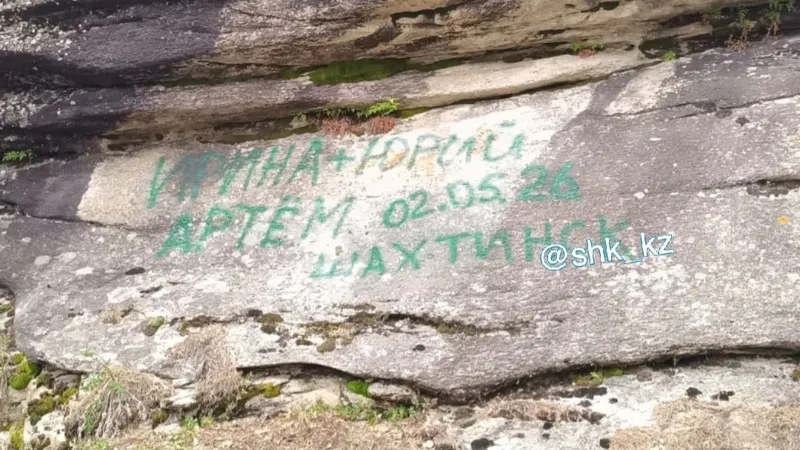 ИРИНА+ЮРИЙ
АРТЁМ 02.05.26
ШАХТИНСК
@shk_kz